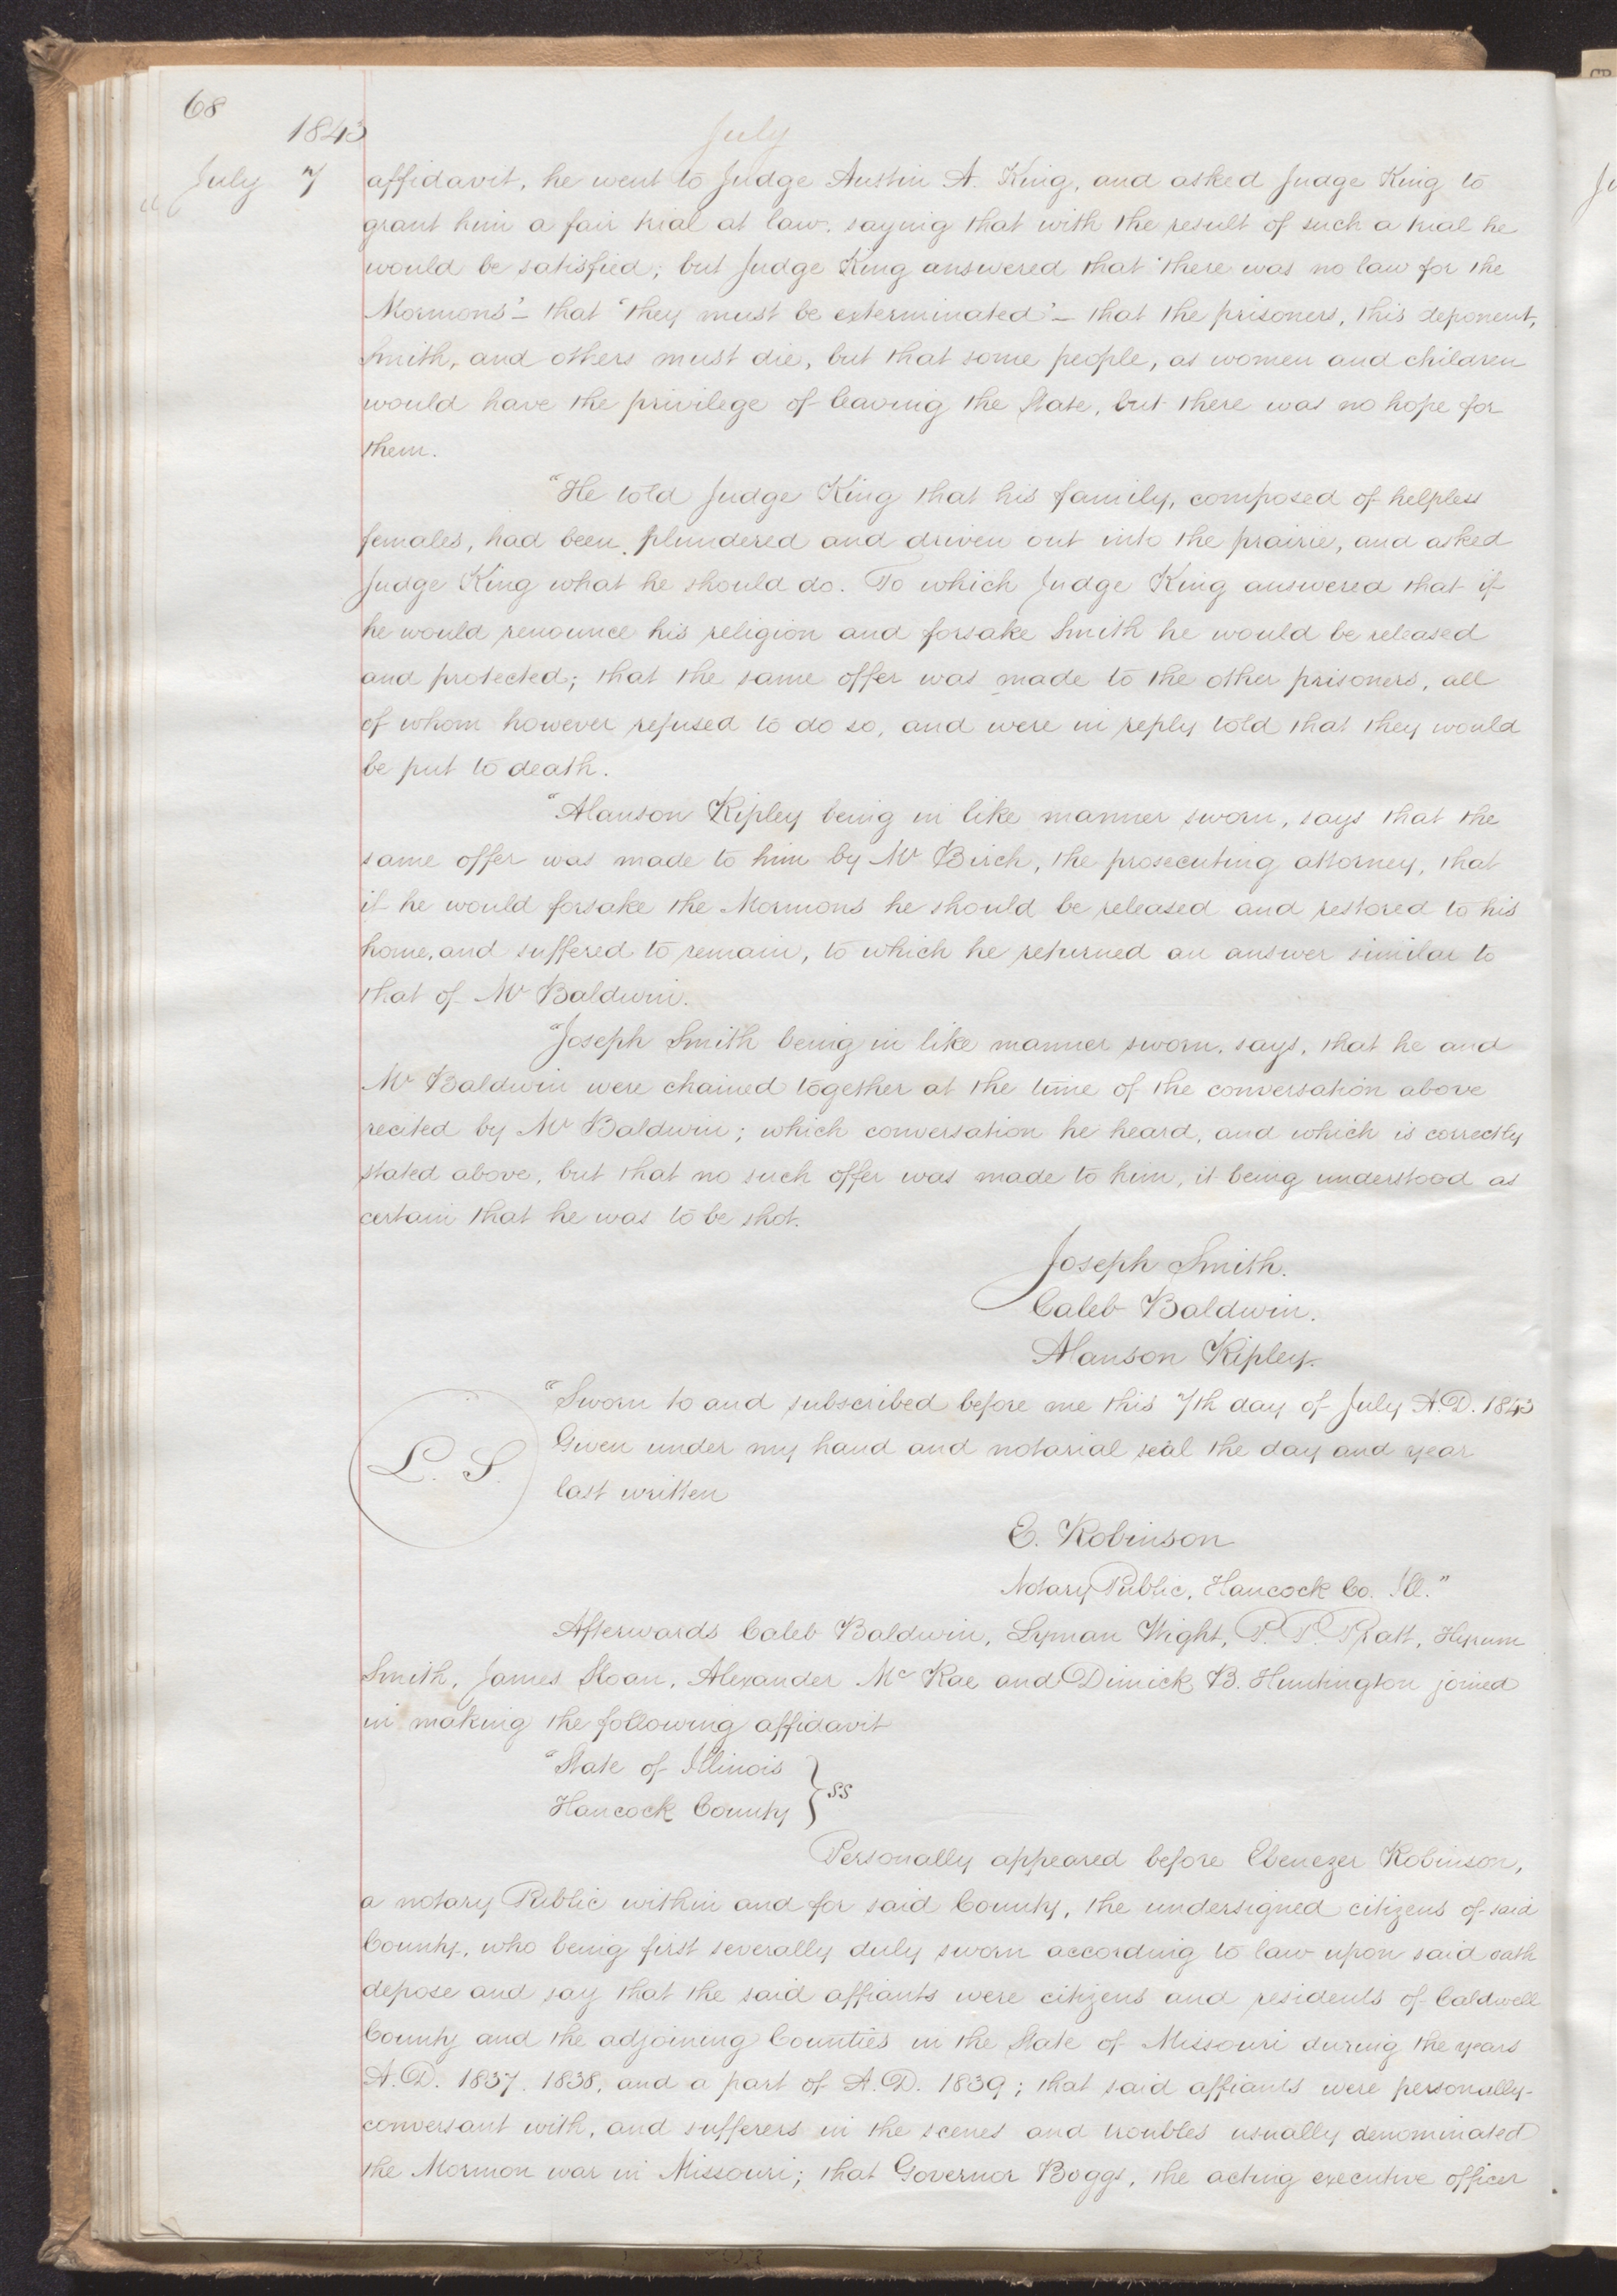 68
1843
July
July 7 affidavit, he went to Judge Austin A. King, and asked Judge King to
grant him a fair trial at law, saying that with the result of such a trial he
would be satisfied; but Judge King answered that "there was no law for the
Mormons"- that "they must be exterminated"- that the prisoners, this deponent,
Smith, and others must die, but that some people, as women and children
would have the privilege of leaving the State, but there was no hope for
them.
"He told Judge King that his family, composed of helpless
females, had been plundered and driven out into the prairie, and asked
Judge King what he should do. To which Judge King answered that if
he would renounce his religion and forsake Smith he would be released
and protected; that the same offer was made to the other prisoners, all
of whom however refused to do so, and were in reply told that they would
be put to death.
"Alanson Ripley being in like manner sworn, says that the
same offer was made to him by Mr Birch, the prosecuting attorney, that
if he would forsake the Mormons he should be released and restored to his
home, and suffered to remain, to which he returned an answer similar to
that of Mr Baldwin.
"Joseph Smith being in like manner sworn, says, that he and
Mr Baldwin were chained together at the time of the conversation above
recited by Mr Baldwin; which conversation he heard, and which is correctly
stated above, but that no such offer was made to him, it being understood as
certain that he was to be shot.
Joseph Smith.
Caleb Baldwin.
Alanson Ripley.
"Sworn to and subscribed before me this 7th day of July A.D. 1843
L. S. Given under my hand and notarial seal the day and year
last written
E. Robinson
Notary Public, Hancock Co. Ill."
Afterwards Caleb Baldwin, Lyman Wight, P. P. Pratt, Hyrum
Smith, James Sloan, Alexander Mc Rae and Dimick B. Huntington joined
in making the following affidavit
"State of Illinois
Hancock County } ss
Personally appeared before Ebenezer Robinson,
a notary Public within and for said County, the undersigned citizens of said
County, who being first severally duly sworn according to law upon said oath
depose and say that the said affiants were citizens and residents of Caldwell
County and the adjoining Counties in the State of Missouri during the years
A.D. 1837. 1838, and a part of A.D. 1839; that said affiants were personally
conversant with, and sufferers in the scenes and troubles usually denominated
the Mormon war in Missouri; that Governor Boggs, the acting executive officer